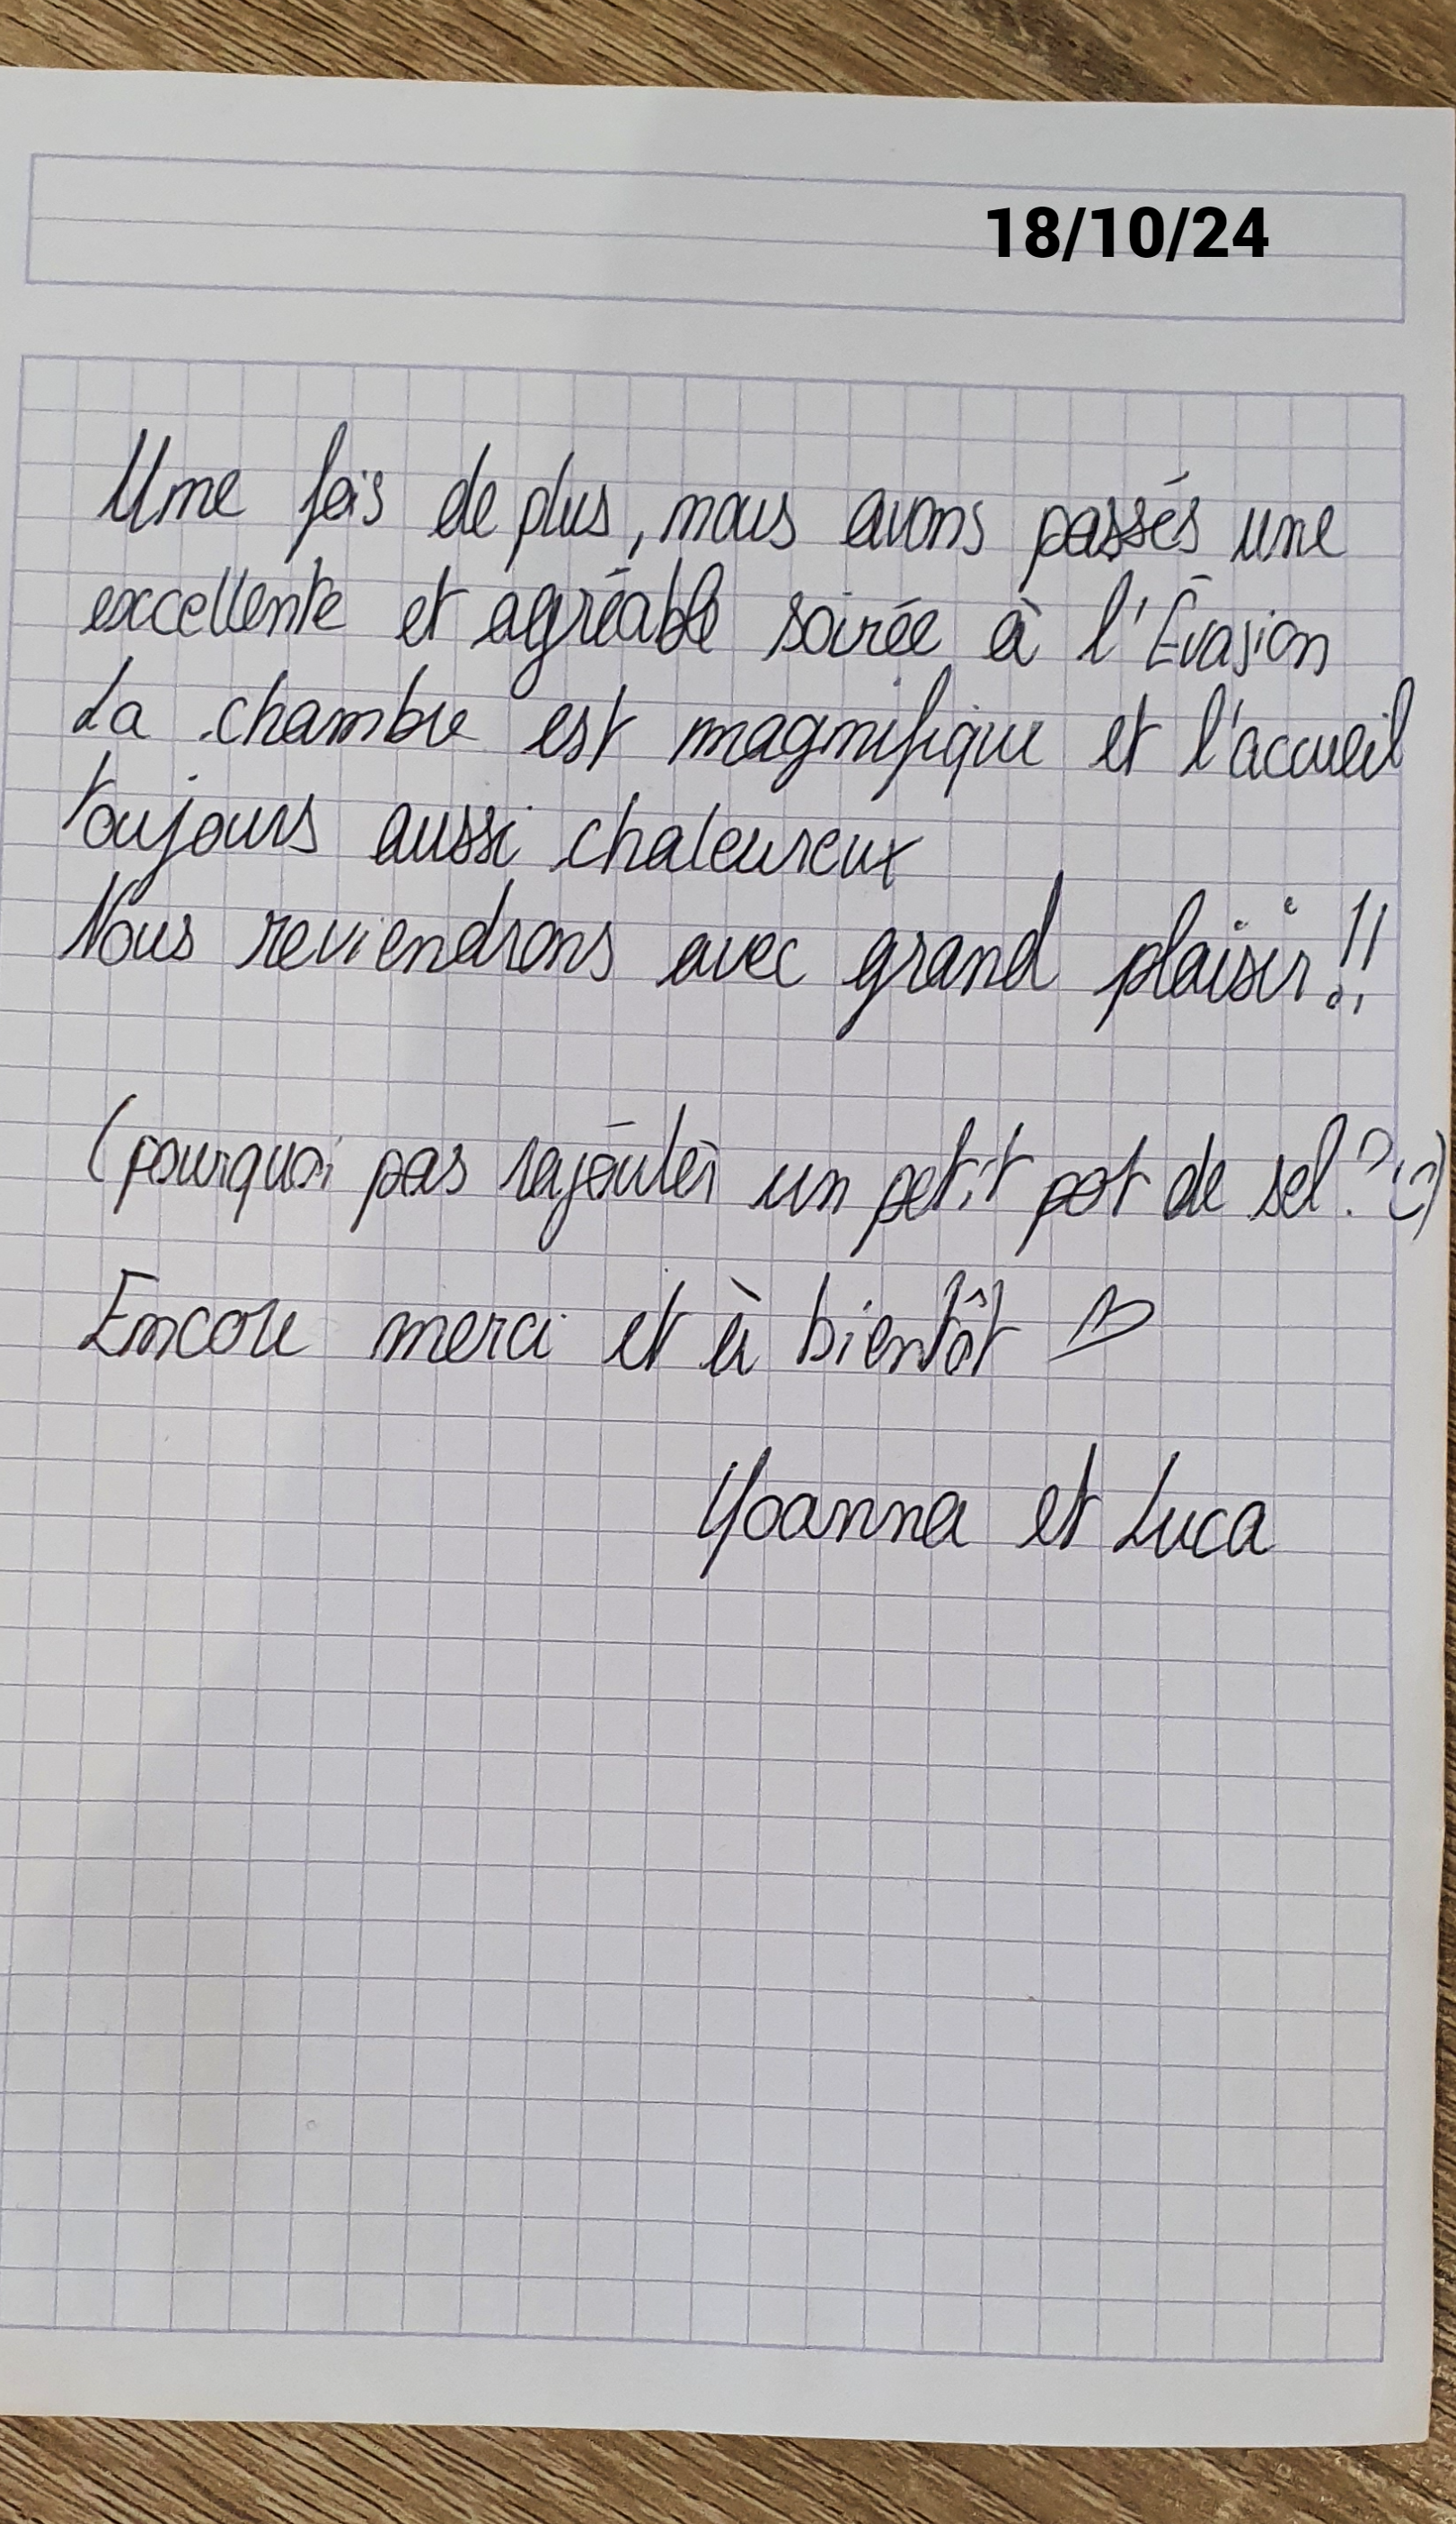 18/10/24
Une fois de plus, nous avons passés une
excellente et agréable soirée à l'Évasion
La chambre est magnifique et l'accueil
toujours aussi chaleureux
Nous reviendrons avec grand plaisir!!
(pourquoi pas rajouter un petit pot de sel ? :))
Encore merci et à bientôt ♡
Yoanna et Luca